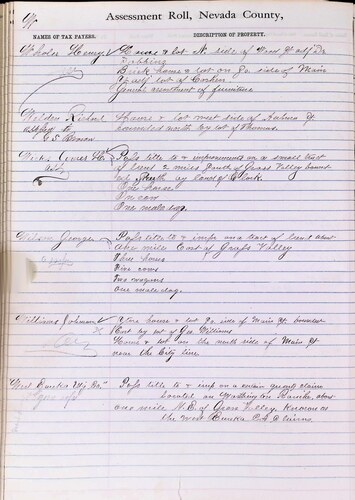 W
Assessment Roll, Nevada County,
NAMES OF TAX PAYERS.
DESCRIPTION OF PROPERTY.
Henry House & lot N. side of
Brick house & lot on So. side of Main
St lot of
General assortment of furniture
House & lot west side of Auburn St
bounded north by lot of Thomas.
Poss title to & improvements on a small tract
of land 2 miles South of Grass Valley bound
by land of Clark.
One horse
One cow
One male dog.
Wilson George Poss title to & imps on a tract of land about
one mile East of Grass Valley
Three horses
Five cows
Two wagons
one male dog.
Williams Johnson One house & lot So. side of Main St. bounded
East by lot of Geo Williams
House & lot on the north side of Main St
near the City line.
West Eureka Mg Co. Poss title to & imps on a certain quartz claim
located on Washington Ravine, about
one mile N.E. of Grass Valley, known as
the West Eureka Co. claims.